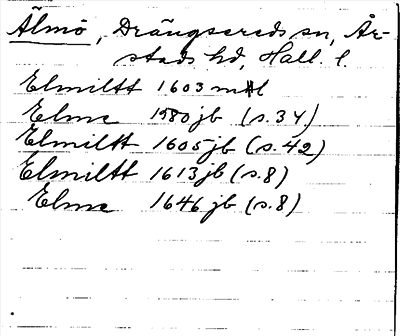 Älmö, Drängsereds sn, År-
stads hd, Hall. l.
Elmiltt 1603 mtl
Elme 1580 jb (s. 34)
Elmiltt 1605 jb (s. 42)
Elmiltt 1613 jb (s. 8)
Elme 1646 jb (s. 8)